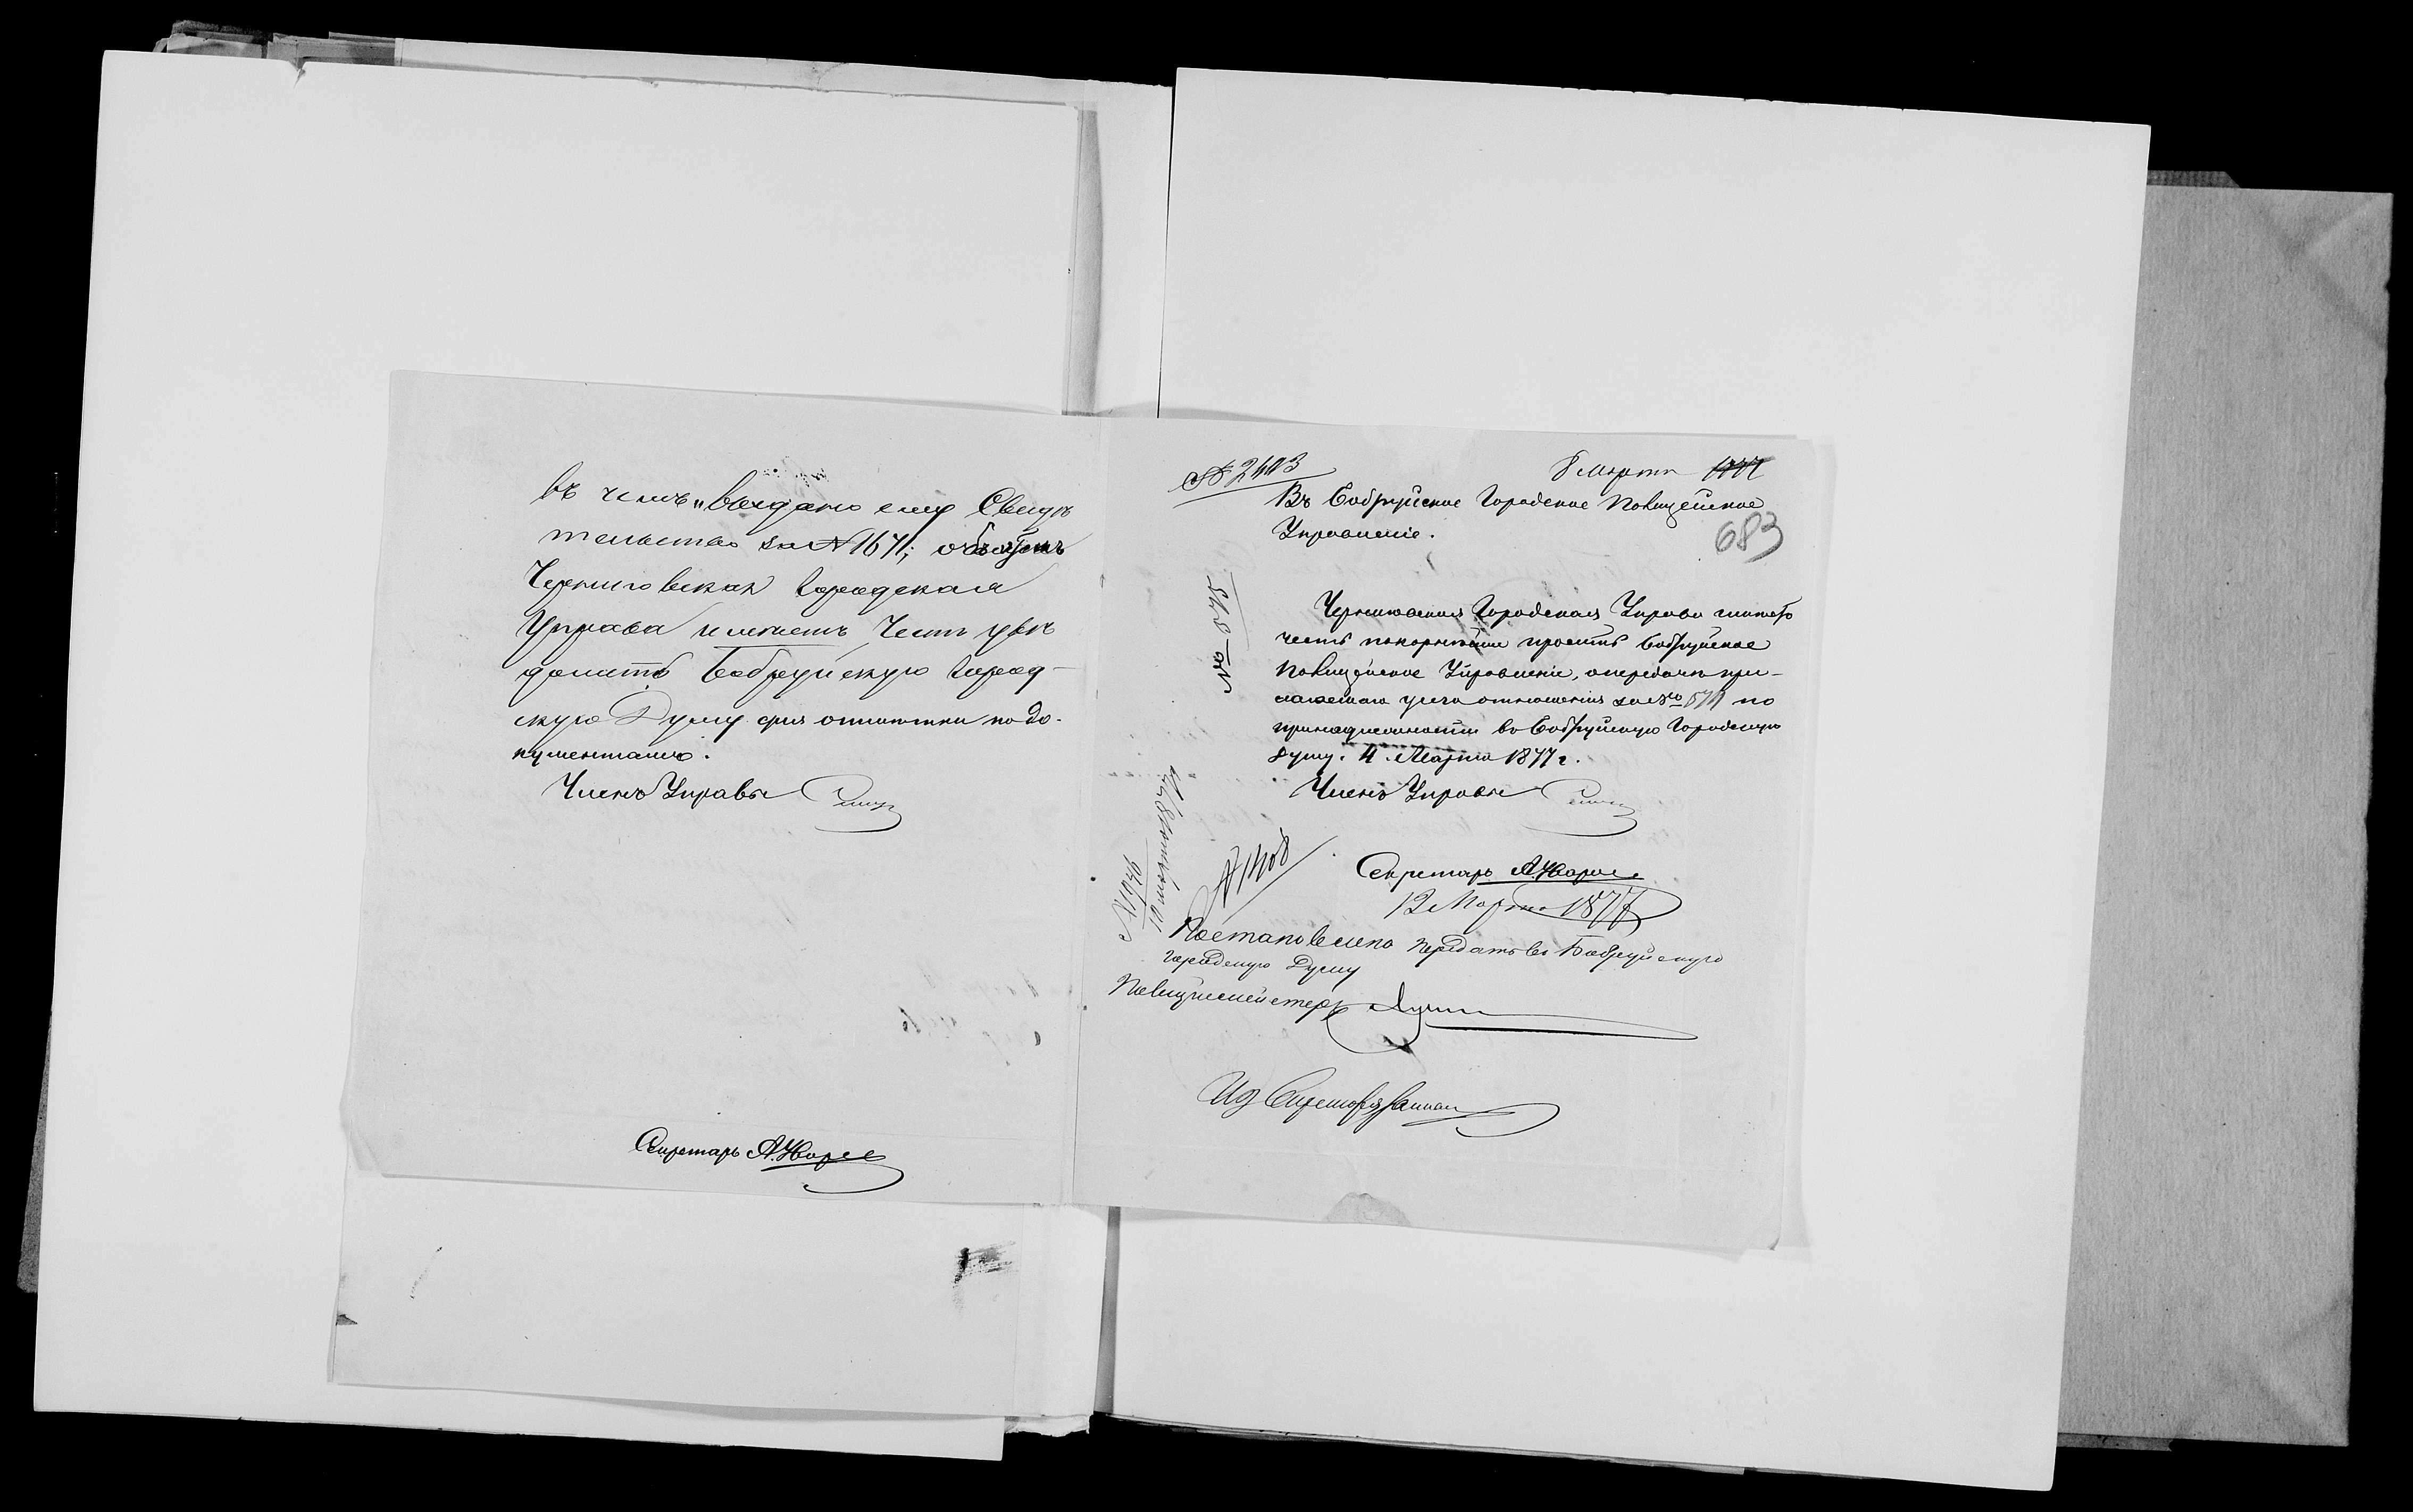 въ чемъ и выдано ему Свидѣ
тельство за № 1671; о чемъ
Черниговская Городская
Управа имѣетъ честь увѣ
домить Бобруйскую Город-
скую Думу для отмѣтки по до-
кументамъ.
Членъ Управы
Секретарь А.
№ 2403
8 Марта 1877
Въ Бобруйское Городское Полицейское
Управленіе.
683
№ 575
Черниговская Городская Управа имѣетъ
честь покорнѣйше просить Бобруйское
Полицейское Управленіе, о передачи при-
лагаемаго у сего отношенія за № 574 по
принадлежности въ Бобруйскую Городскую
Думу. 4 Марта 1877 г.
Членъ Управы
Секретарь А.
12 Марта 1877
№ 1408
Постановлено передать въ Бобруйскую
Городскую Думу
Полицiймейстеръ
Секретаря